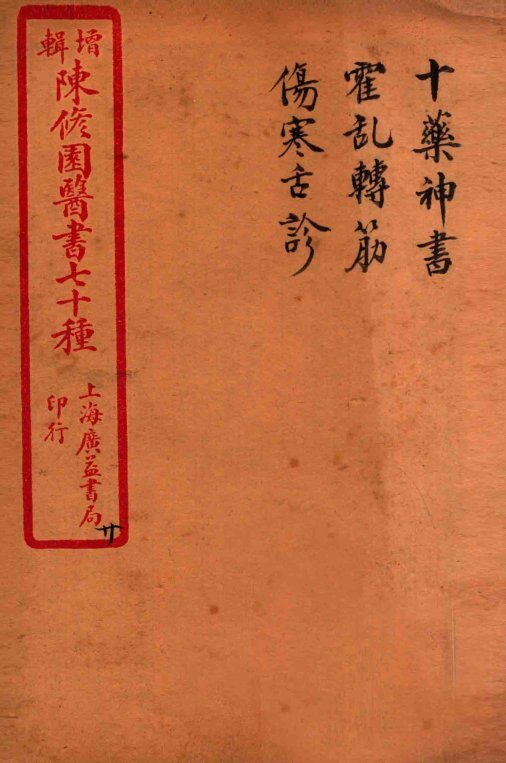 十藥神書
霍乱轉筋
傷寒舌診
增輯
陳修園醫書七十種
上海廣益書局
印行
廿